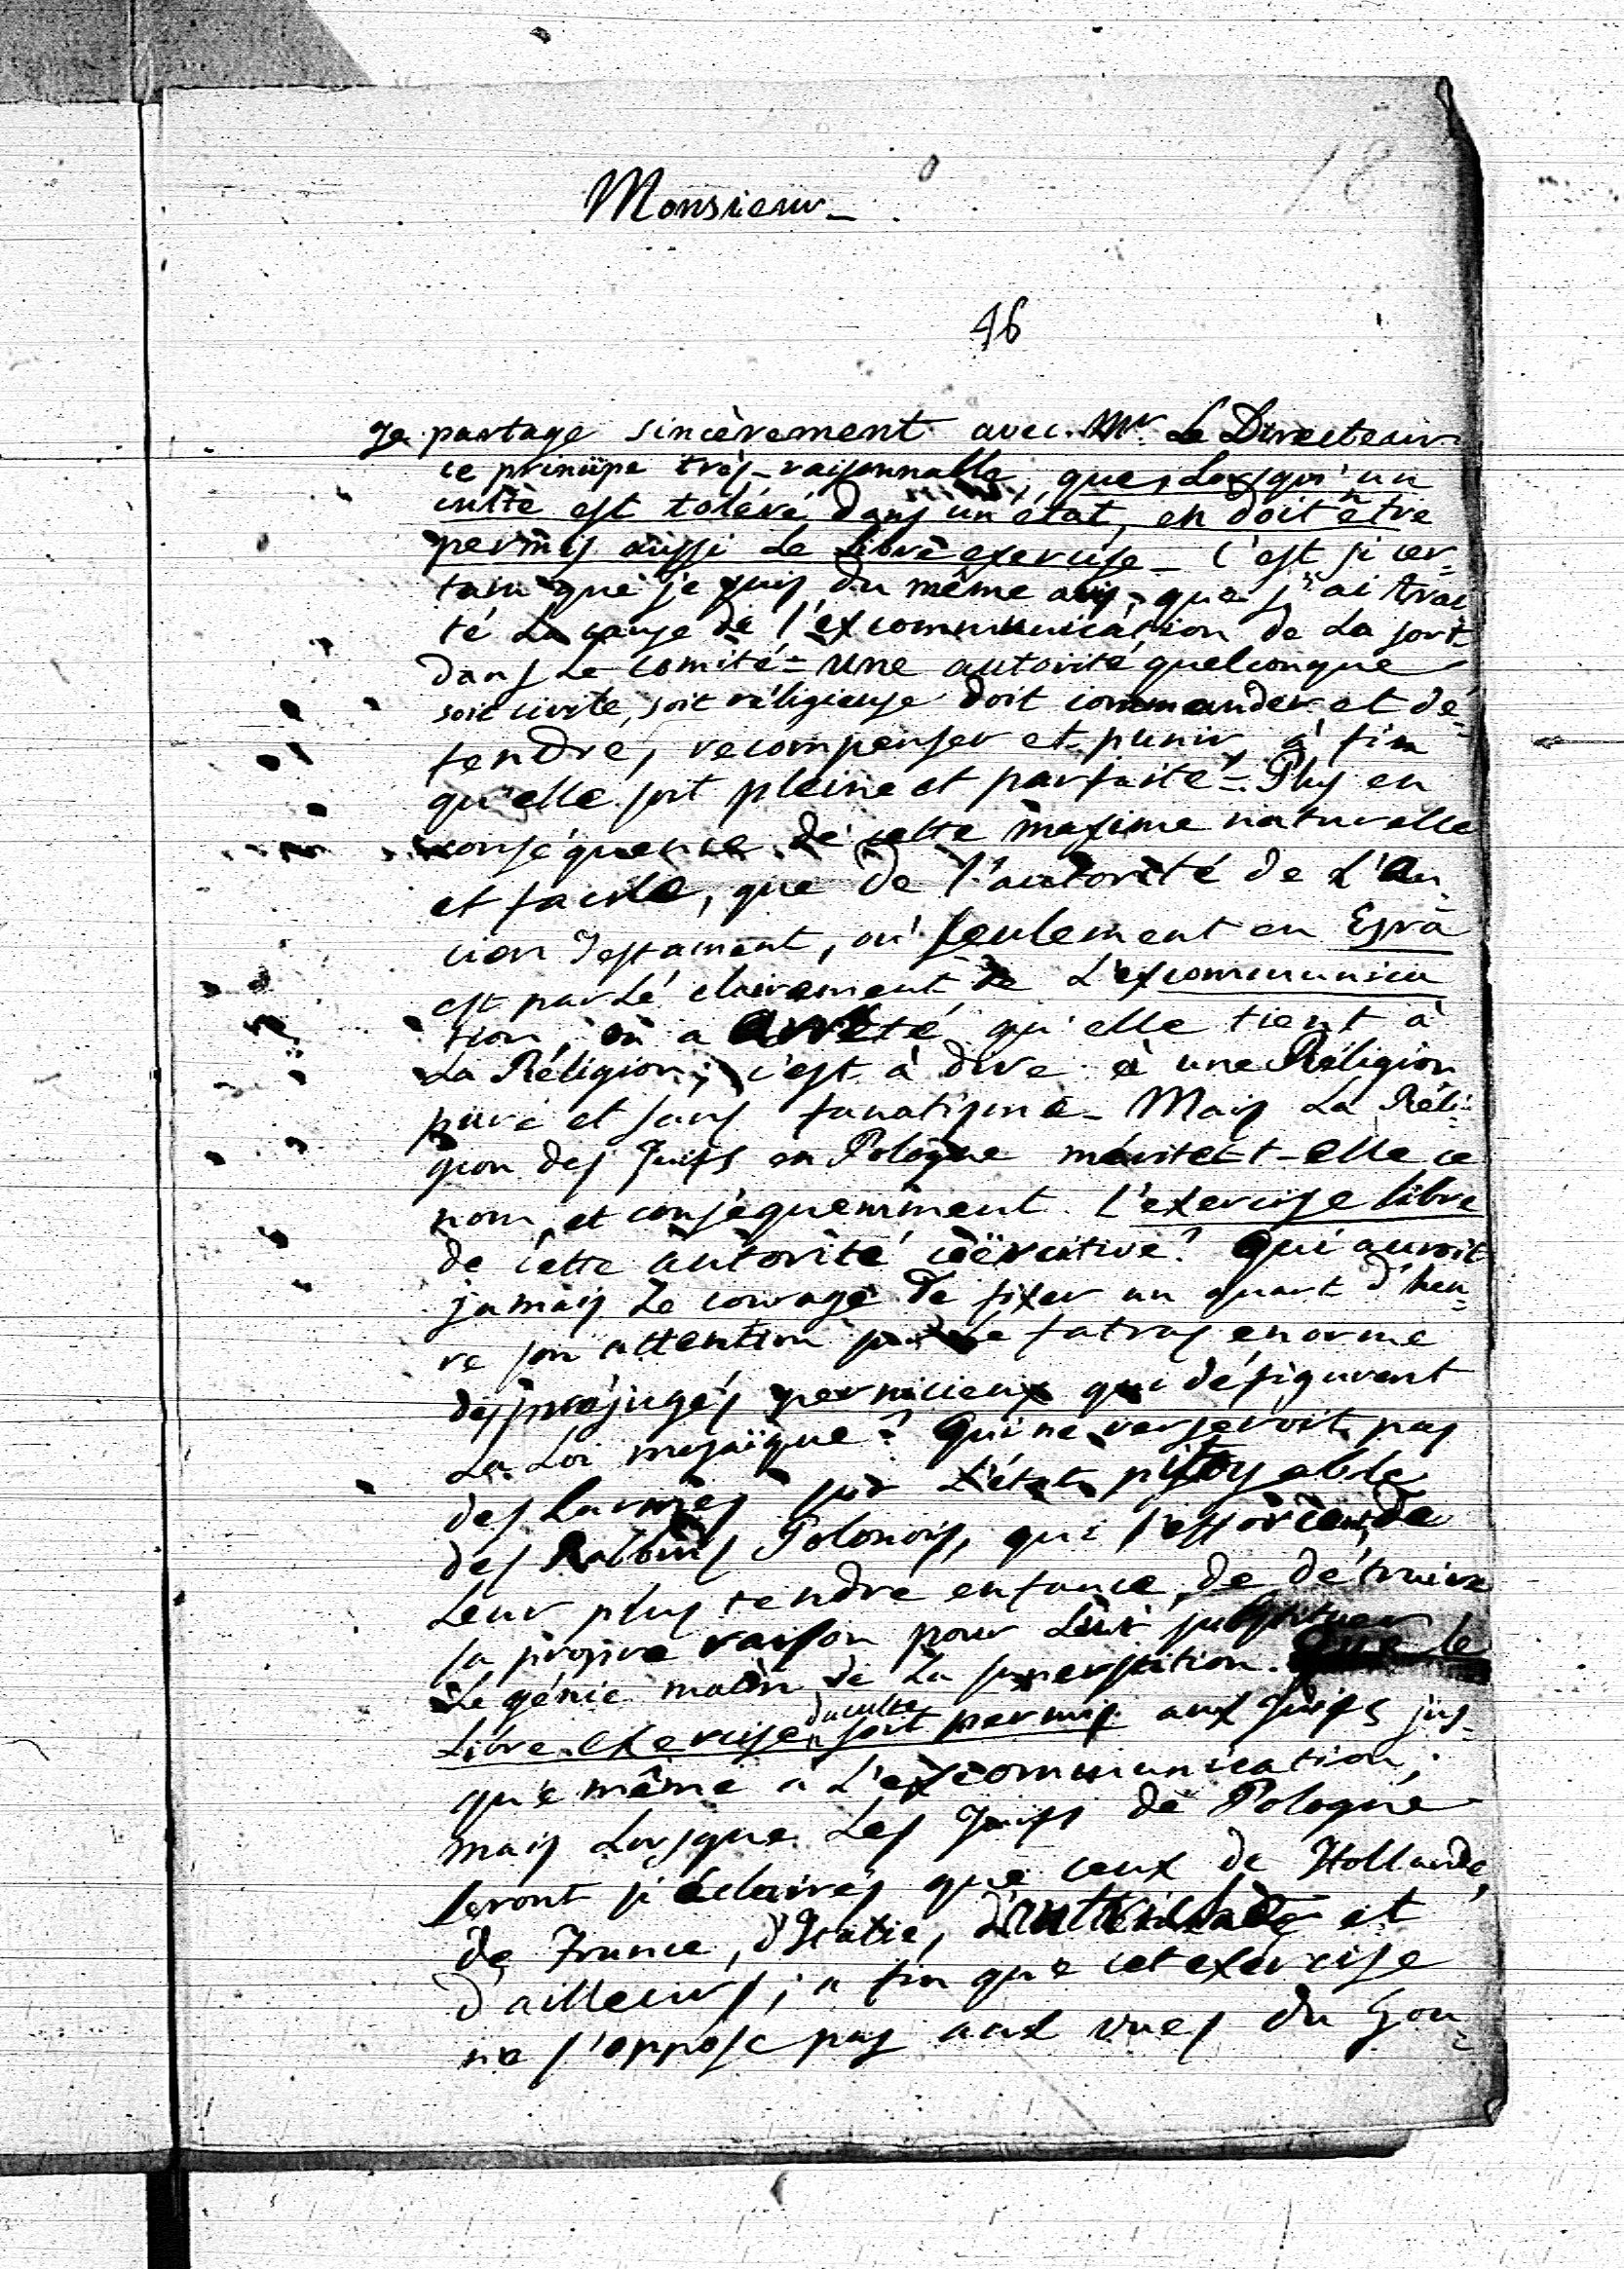 18
Monsieur_
46
Je partage sincèrement avec Mr. Le Directeur
ce principe très-raisonnable, que, Lorsqu'un
culte est toléré dans un état, en doit être
permis aussi Le Libre exercise_ C'est si cer=
tain que je suis du même avis, que j'ai trai
té La cause de l'excommunication de La sort
dans Le comité= Une autorité quelconque
soit civile, soit réligieuse doit commander et dé=
fendre, recompenser et punir, à fin
qu'elle soit pleine et parfaite= Plus en
conséquence de cette maxime naturelle
et facile, que de l'autorité de L'An=
cien Testament, où seulement en Esra
est parlé clairement de L'excommunica
tion, on a arrêté qu'elle tient à
La Réligion; c'est à dire à une Réligion
pure et sans fanatisme_ Mais La Réli=
gion des Juifs en Pologne méritet-elle ce
nom, et conséquemment l'exercise libre
de cette autorité coërcitive? Qui auroit
jamais Le courage de fixer un quart d'heu=
re son attention sur Le fatras enorme
des préjugés pernicieux qui défigurent
La Loi mosaïque? Qui ne verseroit pas
des Larmes sur L'état pitoyable
des Rabbins Polonois, qui s'efforcent, de
Leur plus tendre enfance, de détruire
sa propre raison pour Lui substituer
Le génie malin de La superstition. Que le
Libre exercise du culte soit permis aux Juifs jus=
qu'e même à L'excommunication;
mais Lorsque Les Juifs de Pologne
seront si éclairés que ceux de Hollande,
de France, d'Italie, et
d'ailleurs; a fin que cet exercise
ne s'oppose pas aux vues du Gou=